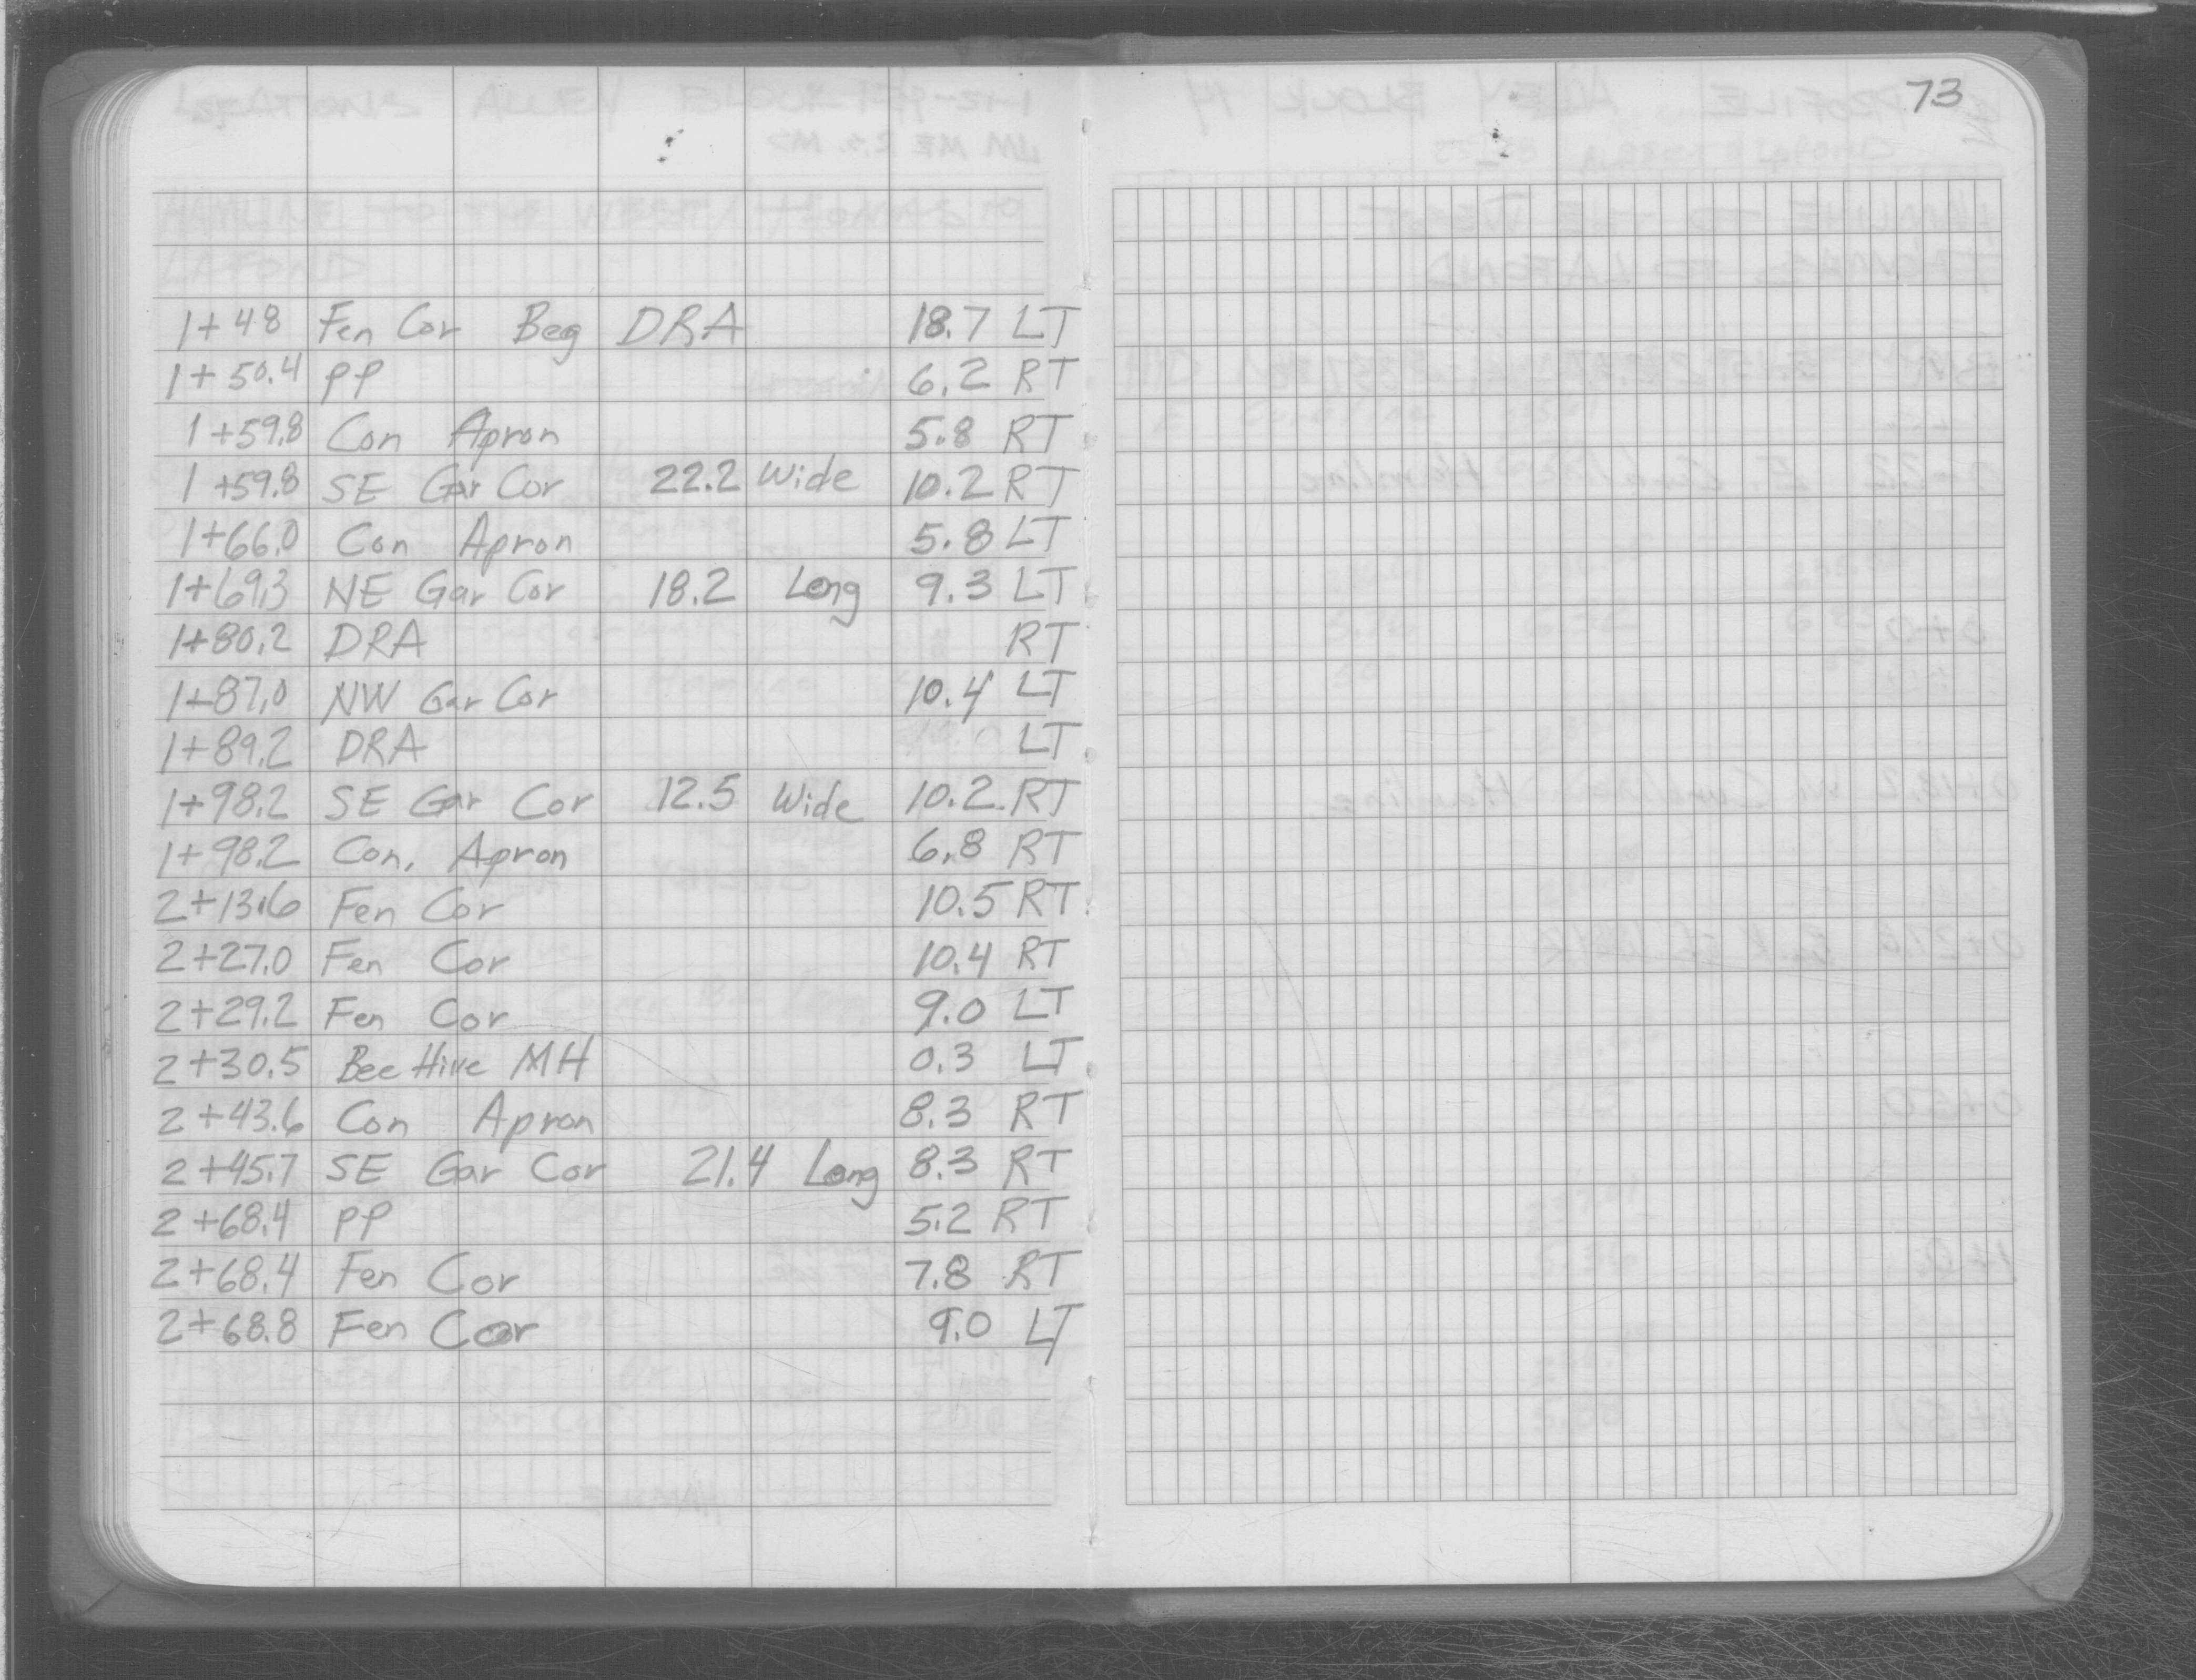 73
1+48 Fen Cor Beg DRA 18.7 LT
1+50.4 PP 6.2 RT
1+59.8 Con Apron 5.8 RT
1+59.8 SE Gar Cor 22.2 Wide 10.2 RT
1+66.0 Con Apron 5.8 LT
1+69.3 NE Gar Cor 18.2 Long 9.3 LT
1+80.2 DRA RT
1+87.0 NW Gar Cor 10.4 LT
1+89.2 DRA LT
1+98.2 SE Gar Cor 12.5 Wide 10.2 RT
1+98.2 Con. Apron 6.8 RT
2+13.6 Fen Cor 10.5 RT
2+27.0 Fen Cor 10.4 RT
2+29.2 Fen Cor 9.0 LT
2+30.5 Bee Hive MH 0.3 LT
2+43.6 Con Apron 8.3 RT
2+45.7 SE Gar Cor 21.4 Long 8.3 RT
2+68.4 PP 5.2 RT
2+68.4 Fen Cor 7.8 RT
2+68.8 Fen Cor 9.0 LT